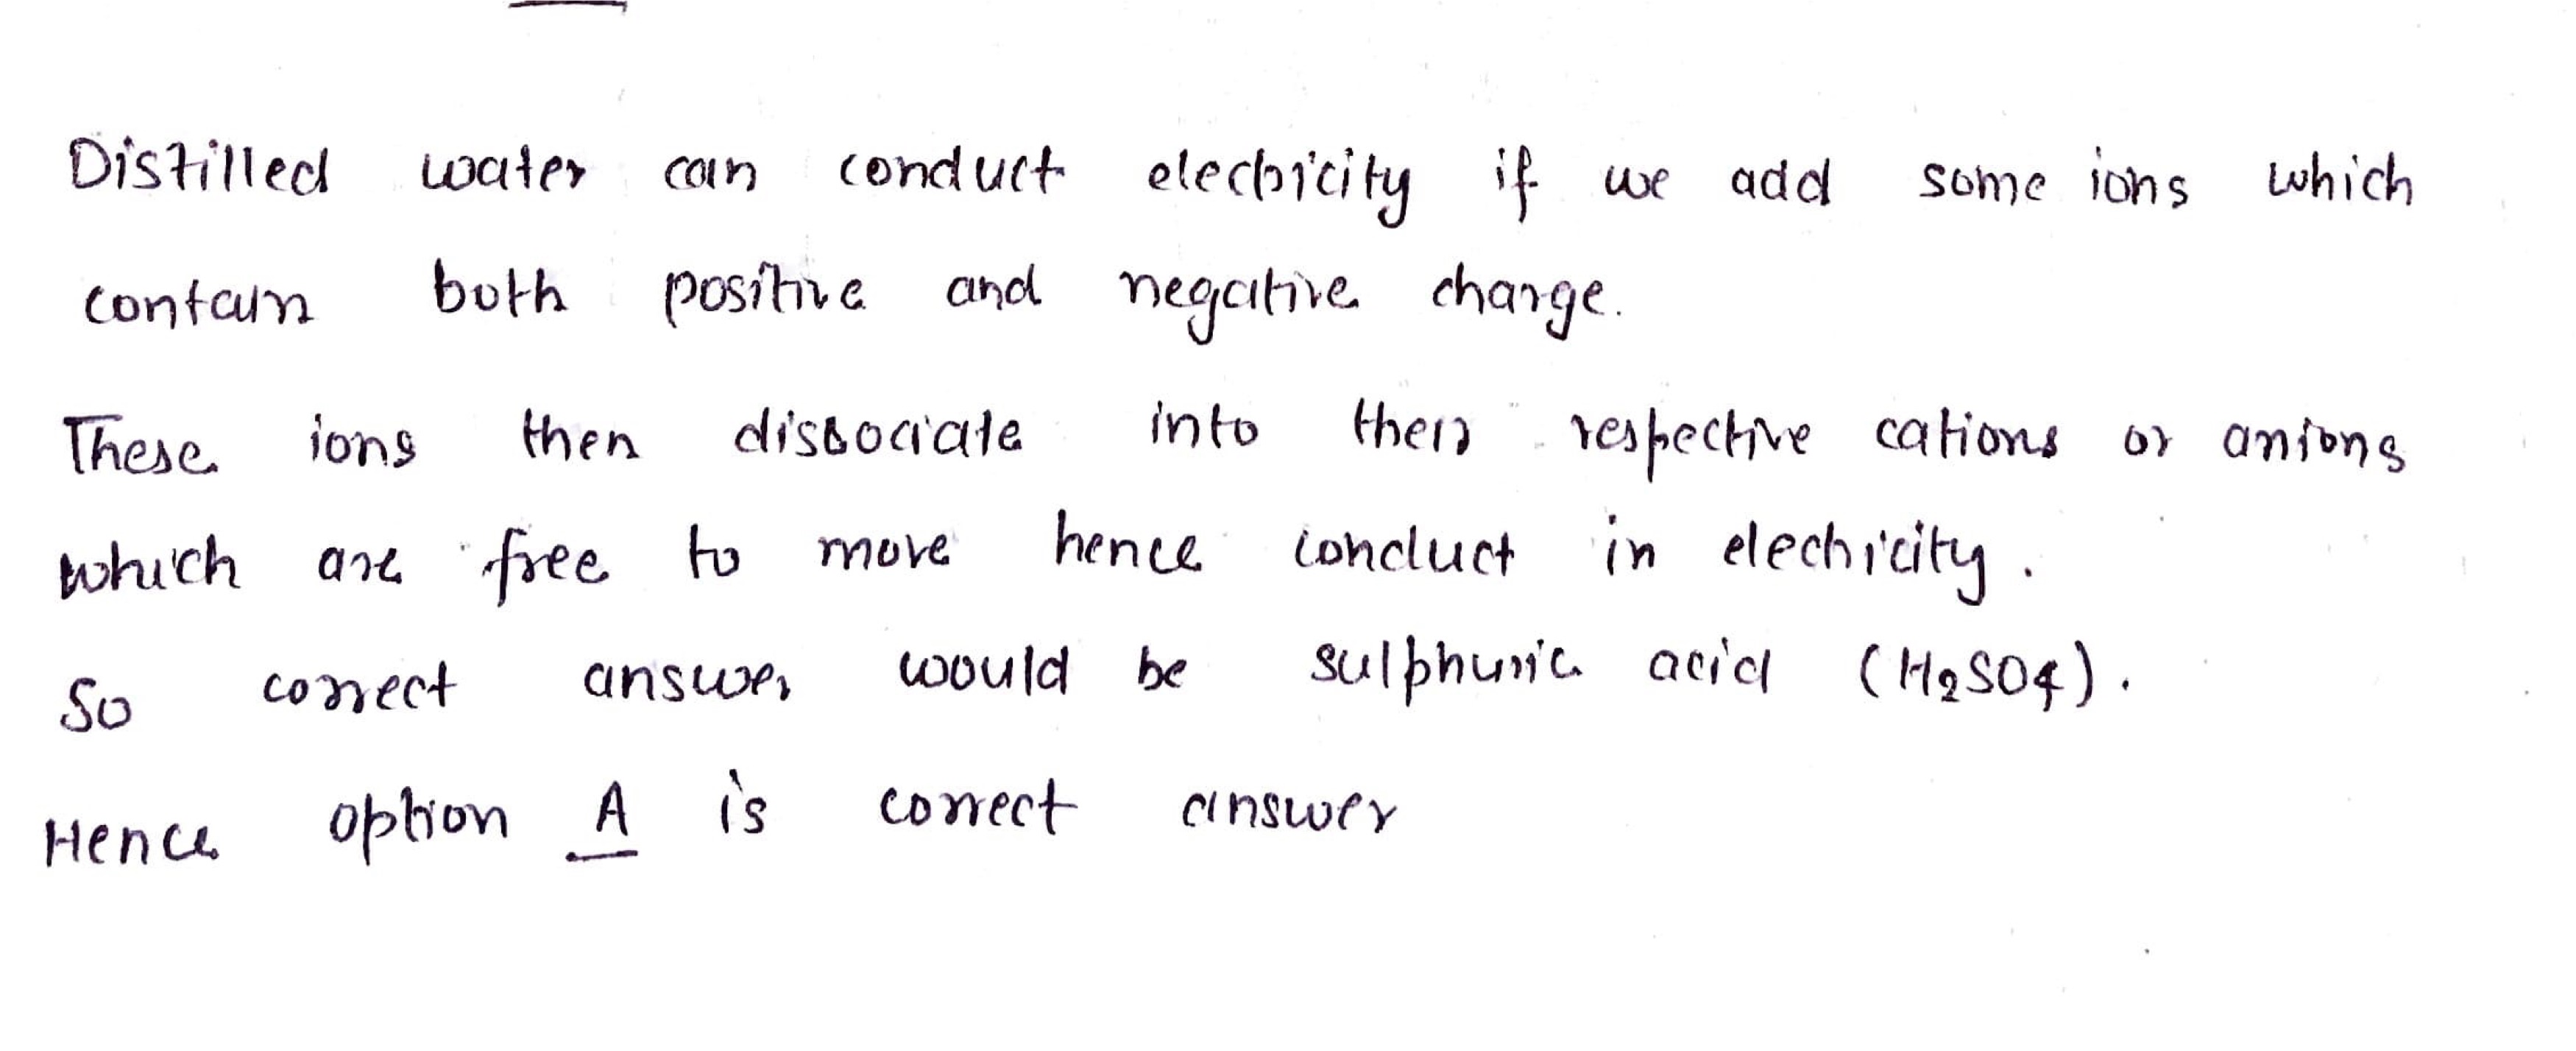 Distilled water can conduct electricity if we add some ions which
contain both positive and negative charge.
These ions then dissociate into their respective cations or anions
which are free to move hence conduct in electricity.
So correct answer would be sulphuric acid (H2SO4).
Hence option A is correct answer